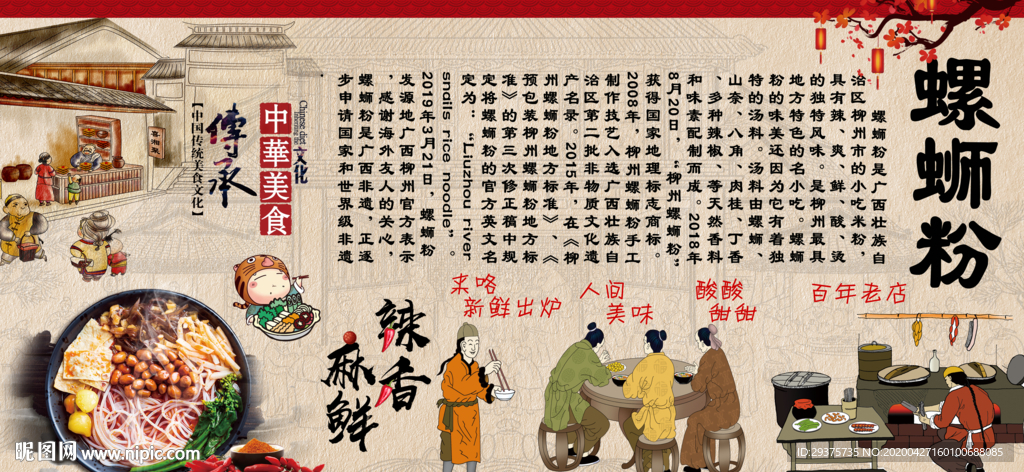 螺蛳粉
螺蛳粉是广西壮族自
治区柳州市的小吃米粉，
具有辣、爽、鲜、酸、烫
的独特风味。是柳州最具
地方特色的名小吃。螺蛳
粉的味美还因为它有着独
特的汤料。汤料由螺蛳、
山奈、八角、肉桂、丁香
、多种辣椒、等天然香料
和味素配制而成。2018年
8月20日，“柳州螺蛳粉”
获得国家地理标志商标。
2008年，柳州螺蛳粉手工
制作技艺入选广西壮族自
治区第二批非物质文化遗
产名录。2015年，在《柳
州螺蛳粉地方标准》、《
预包装柳州螺蛳粉地方标
准》的第三次修正稿中规
定将螺蛳粉的官方英文名
定为：“Liuzhou river
snails rice noodle”。
2019年3月21日，螺蛳粉
发源地广西柳州官方表示
，感谢海外友人的关心，
螺蛳粉是广西非遗，正逐
步申请国家和世界级非遗
。
文化
中華美食
傳承
【中国传统美食文化】
喜湘聚
辣香
麻鲜
来咯
新鲜出炉
人间
美味
酸酸
甜甜
百年老店
昵图网
www.nipic.com
ID:29375735 NO:20200427160100688085